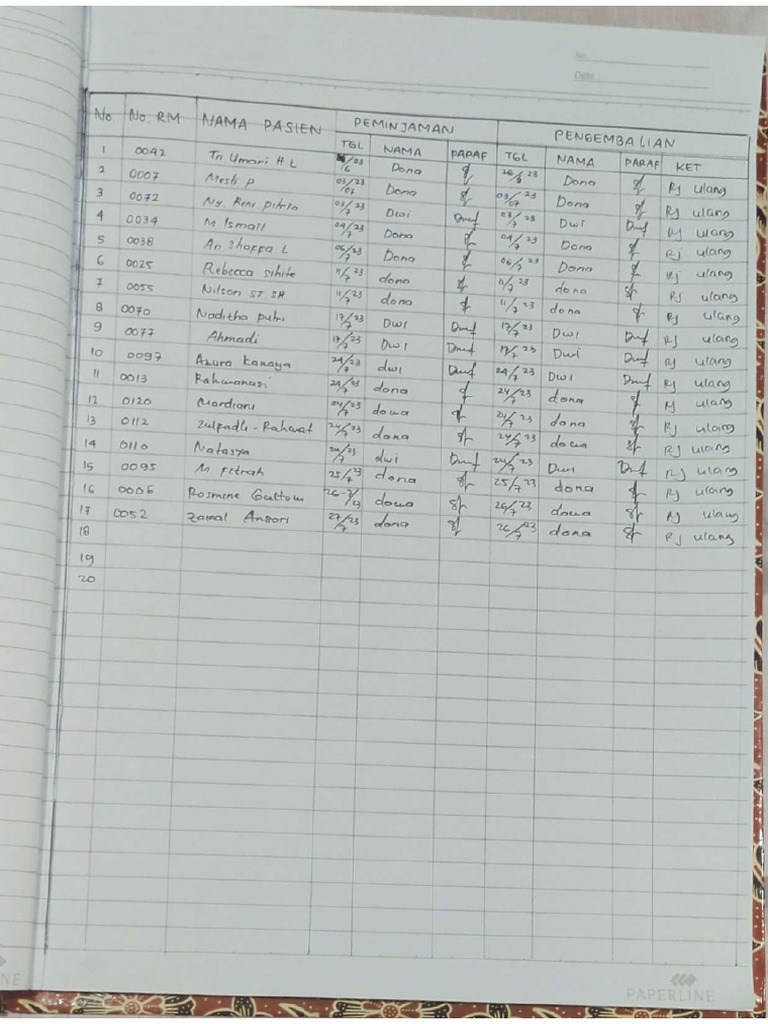 No
Date
No. No. RM NAMA PASIEN PEMINJAMAN PENGEMBALIAN
TGL NAMA PARAF TGL NAMA PARAF KET
1 0042 Tn Umari H L /23 6 Dona 26/6 23 Dona Rj ulang
2 0007 Mesti P 03/23 07 Dona 03/23 07 Dona Rj ulang
3 0072 Ny. Reni 03/23 7 Dwi 03/23 7 Dwi Rj ulang
4 0034 M Ismail 04/23 7 Dona 04/23 7 Dona Rj ulang
5 0038 An Shaffa L 06/23 7 Dona 06/23 7 Dona Rj ulang
6 0025 Rebecca sihite 11/23 7 dona 11/23 7 dona Rj ulang
7 0055 Nilson ST SH 11/23 7 dona 11/23 7 dona Rj ulang
8 0070 Naditha putri 17/23 7 Dwi 17/23 7 Dwi Rj ulang
9 0077 Ahmadi 17/23 7 Dwi 17/23 7 Dwi Rj ulang
10 0097 Azura Kanaya 24/23 7 dwi 24/23 7 Dwi Rj ulang
11 0013 24/23 7 dona 24/23 7 dona Rj ulang
12 0120 Mardiani 24/23 7 dona 24/23 7 dona Rj ulang
13 0112 Zulfadli - Rahmat 24/23 7 dona 24/23 7 dona Rj ulang
14 0110 Natasya 24/23 7 dwi 24/23 7 Dwi Rj ulang
15 0095 M Fitrah 25/23 7 dona 25/7 23 dona Rj ulang
16 0006 Rosmine Goltom 26-7/23 dona 26/23 7 dona Rj ulang
17 0052 Zainal Ansori 27/23 7 dona 26/23 7 dona Rj ulang
18
19
20
PAPERLINE